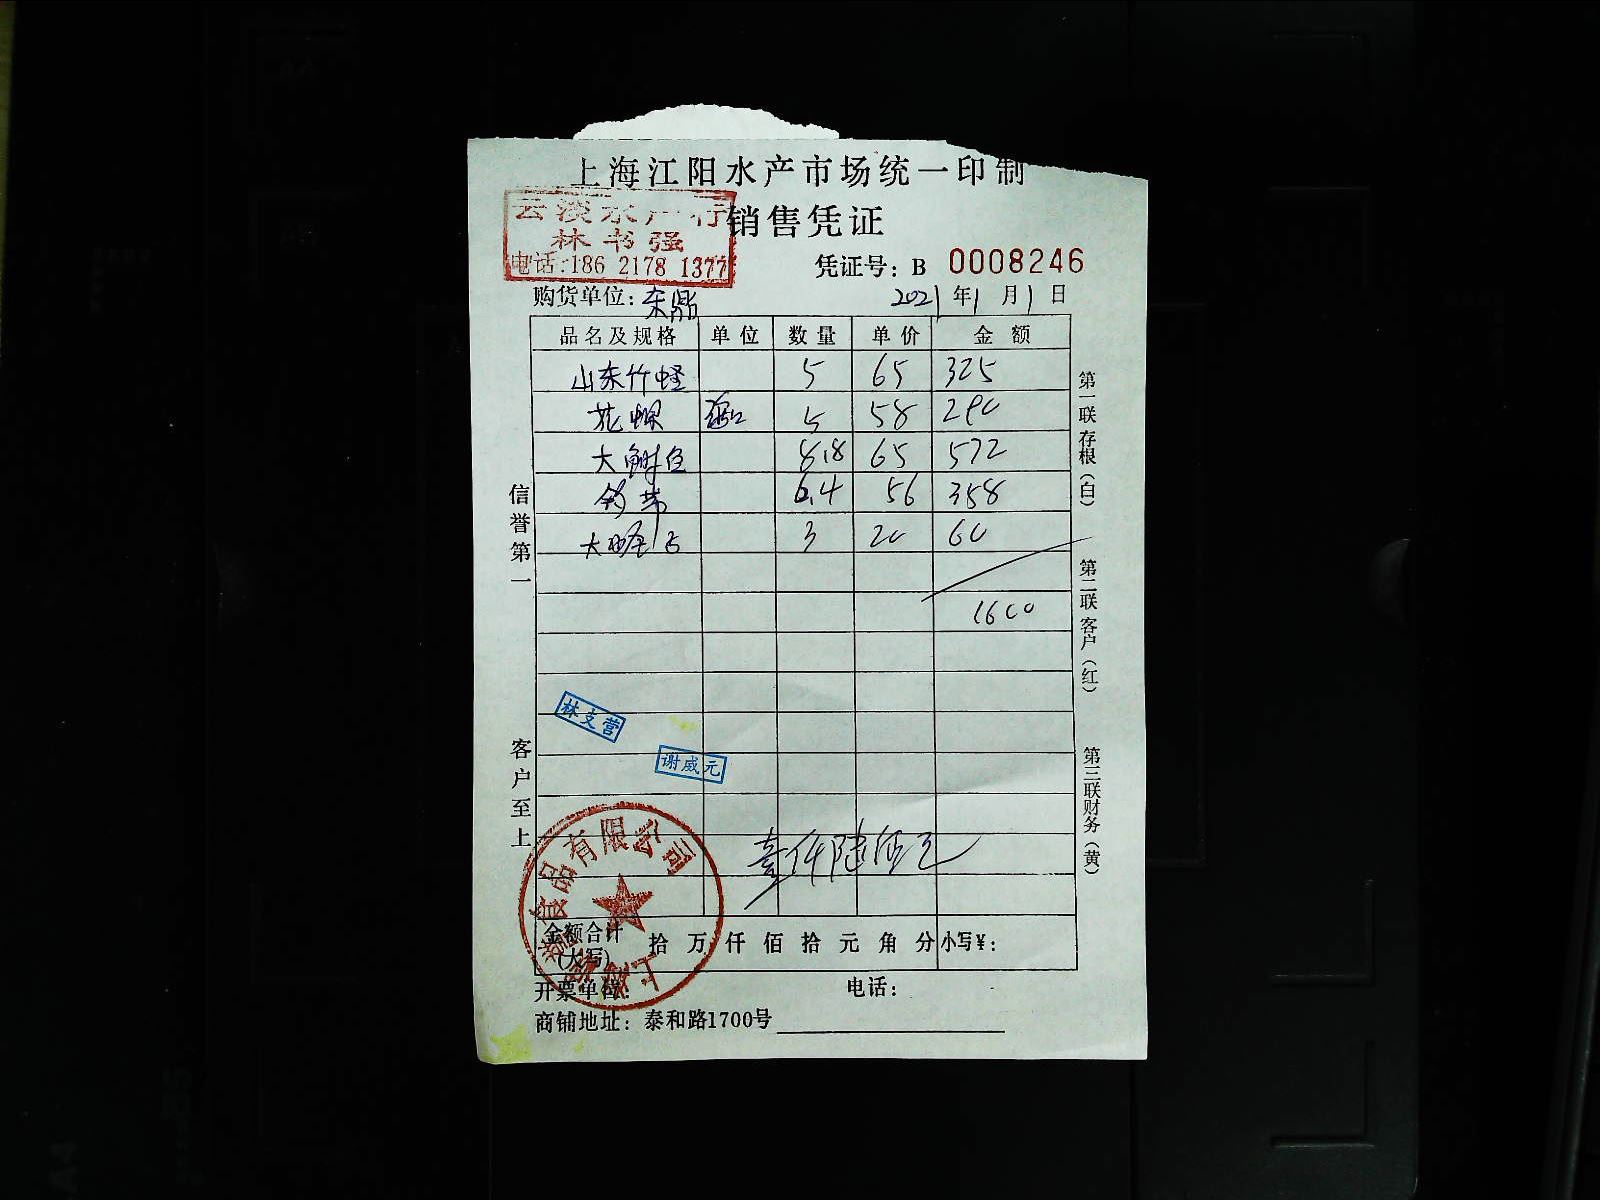 上海江阳水产市场统一印制
云淡水产行
销售凭证
林书强
电话:186 2178 1377
凭证号: B 0008246
购货单位: 东鼎 2021年1月1日
品名及规格 单位 数量 单价 金额
山东竹蛏 5 65 325
花螺 5 58 290
大 8.8 65 572
6.4 56 358
大 3 20 60
1600
信誉第一
客户至上
第一联存根(白)
第二联客户(红)
第三联财务(黄)
林支营
谢威元
壹仟陆佰元
食品有限公司
金额合计(大写) 拾 万 仟 佰 拾 元 角 分 小写¥:
开票单位: 电话:
商铺地址: 泰和路1700号